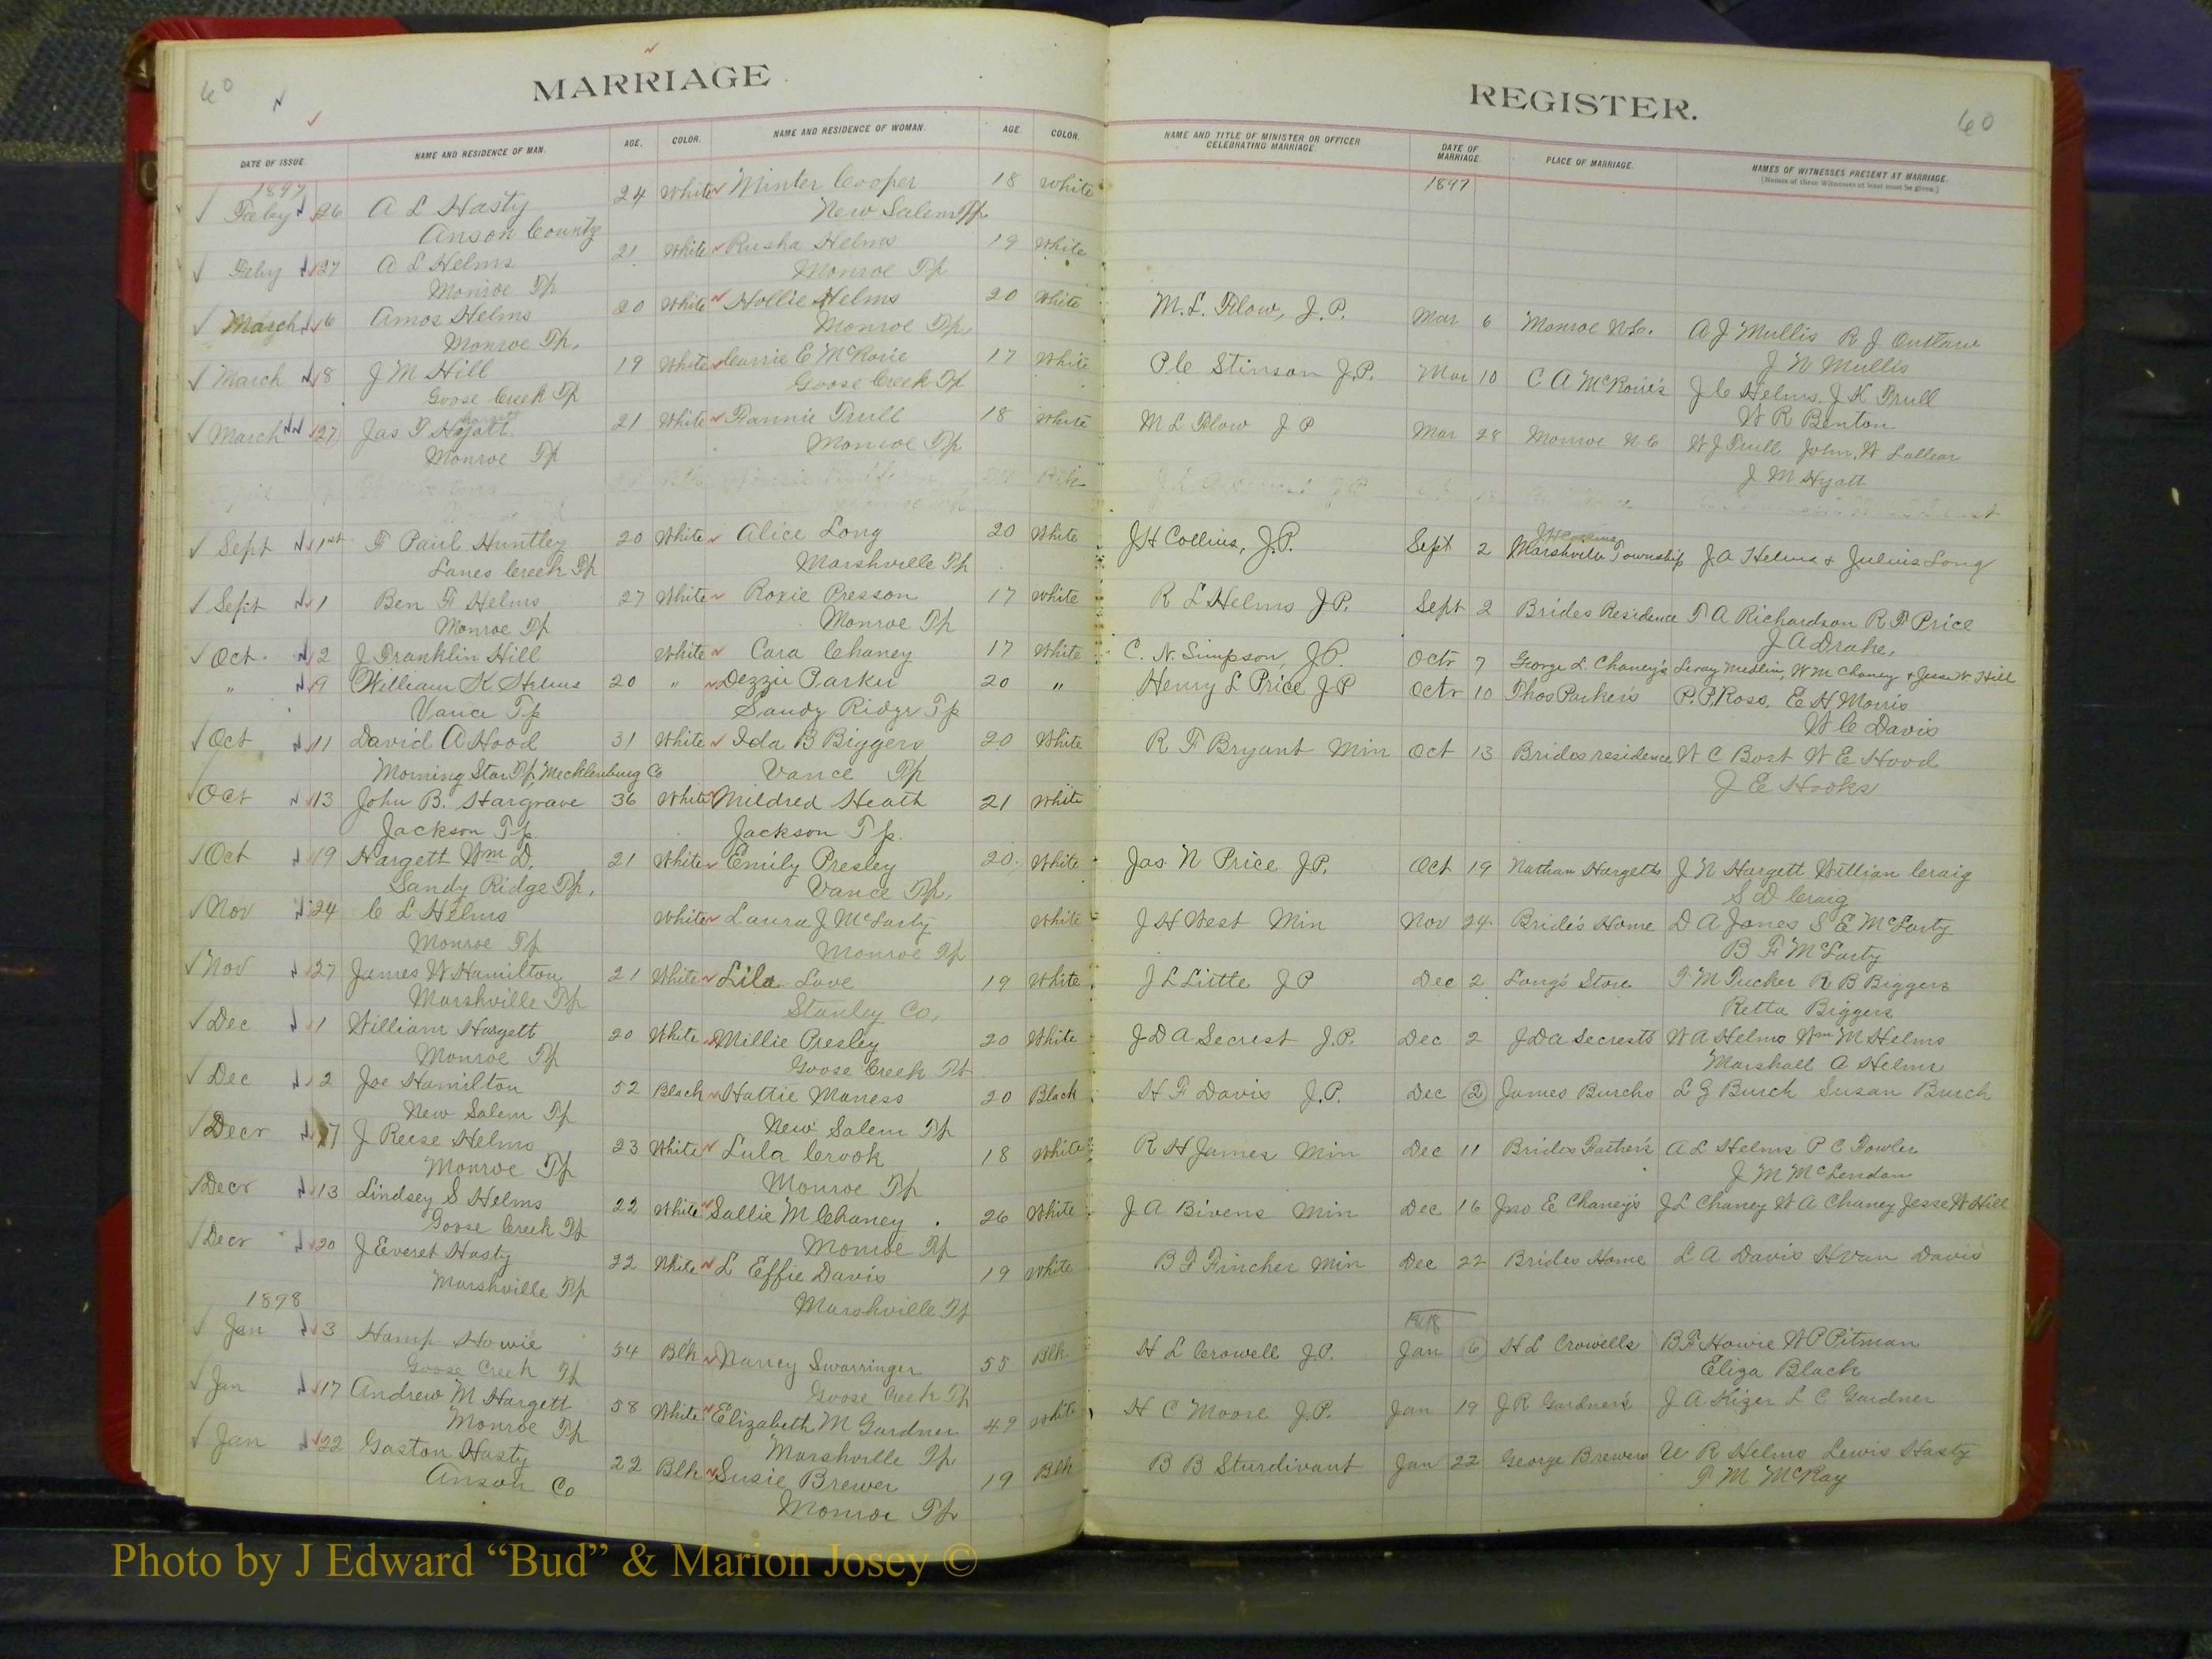 60
MARRIAGE
DATE OF ISSUE. NAME AND RESIDENCE OF MAN. AGE. COLOR. NAME AND RESIDENCE OF WOMAN. AGE. COLOR.
1897
Feby 26 A L Hasty 24 White Minter Cooper 18 White
Anson County New Salem Tp
Feby 27 A L Helms 21 White Rusha Helms 19 White
Monroe Tp Monroe Tp
March 6 Amos Helms 20 White Hollie Helms 20 White
Monroe Tp. Monroe Tp.
March 8 J M Hill 19 White Carrie E McRorie 17 White
Goose Creek Tp Goose Creek Tp
March 27 Jas T Hyatt 21 White Fannie Trull 18 White
Monroe Tp Monroe Tp
Sept 1st F Paul Huntley 20 White Alice Long 20 White
Lanes Creek Tp Marshville Tp
Sept 1 Ben F Helms 27 White Roxie Presson 17 White
Monroe Tp Monroe Tp
Oct. 2 J Franklin Hill White Cara Chaney 17 White
" 9 William K Helms 20 " Dezzie Parker 20 "
Vance Tp Sandy Ridge Tp
Oct 11 David A Hood 31 White Ida B Biggers 20 White
Morning Star Tp, Mecklenburg Co Vance Tp
Oct 13 John B. Hargrave 36 White Mildred Heath 21 White
Jackson Tp. Jackson Tp.
Oct 19 Hargett Wm D. 21 White Emily Presley 20 White
Sandy Ridge Tp. Vance Tp.
Nov 24 C L Helms White Laura J McLarty White
Monroe Tp Monroe Tp
Nov 27 James W Hamilton 21 White Lila Love 19 White
Marshville Tp Stanley Co,
Dec 1 William Hargett 20 White Millie Presley 20 White
Monroe Tp Goose Creek Tp
Dec 2 Joe Hamilton 52 Black Hattie Maness 20 Black
New Salem Tp New Salem Tp
Decr 7 J Reese Helms 23 White Lula Crook 18 White
Monroe Tp Monroe Tp
Decr 13 Lindsey S Helms 22 White Sallie M Chaney 26 White
Goose Creek Tp Monroe Tp
Decr 20 J Everet Hasty 22 White L Effie Davis 19 White
Marshville Tp Marshville Tp
1898
Jan 3 Hamp Howie 54 Blk Nancy Swarringer 55 Blk
Goose Creek Tp Goose Creek Tp
Jan 17 Andrew M Hargett 58 White Elizabeth M Gardner 49 White
Monroe Tp Marshville Tp
Jan 22 Gaston Hasty 22 Blk Susie Brewer 19 Blk
Anson Co Monroe Tp
REGISTER.
60
NAME AND TITLE OF MINISTER OR OFFICER CELEBRATING MARRIAGE. DATE OF MARRIAGE. PLACE OF MARRIAGE. NAMES OF WITNESSES PRESENT AT MARRIAGE.
[Names of three Witnesses at least must be given.]
1897
M. L. Flow, J.P. Mar 6 Monroe N.C. A J Mullis R J Outlaw
J W Mullis
P C Stinson J.P. Mar 10 C A McRorie's J C Helms, J K Trull
W R Benton
M L Flow J P Mar 28 Monroe N C W J Trull John W Lallear
J M Hyatt
J H Collins, J.P. Sept 2 Marshville Township J A Helms & Julius Long
R L Helms J.P. Sept 2 Brides Residence T A Richardson R F Price
J A Drake,
C. N. Simpson, J.P. Octr 7 George L Chaney's Leroy Medlin, W M Chaney & Jesse W Hill
Henry L Price J P Octr 10 Thos Parker's P. P. Ross, E H Morris
W C Davis
R F Bryant Min Oct 13 Brides residence W C Bost W E Hood
J E Hooks
Jas N Price J.P. Oct 19 Nathan Hargetts J N Hargett Willian Craig
S D Craig
J H West Min Nov 24 Bride's Home D A Jones S E McLarty
B F McLarty
J L Little J P Dec 2 Long's Store T M Tucker R B Biggers
Retta Biggers
J D A Secrest J.P. Dec 2 J D A Secrests W A Helms Wm M Helms
Marshall A Helms
H F Davis J.P. Dec 2 James Burchs L G Burch Susan Burch
R H James Min Dec 11 Brides Father's A L Helms P C Fowler
J M McLendon
J A Bivens Min Dec 16 Jno E Chaney's J L Chaney W A Chaney Jesse W Hill
B F Fincher Min Dec 22 Brides Home L A Davis H Van Davis
1898
H L Crowell J.P. Jan 6 H L Crowells B F Howie W P Pitman
Eliza Black
H C Moore J.P. Jan 19 J R Gardner's J A Kizer L C Gardner
B B Sturdivant Jan 22 George Brewers W R Helms Lewis Hasty
T M McRay
Photo by J Edward “Bud” & Marion Josey ©